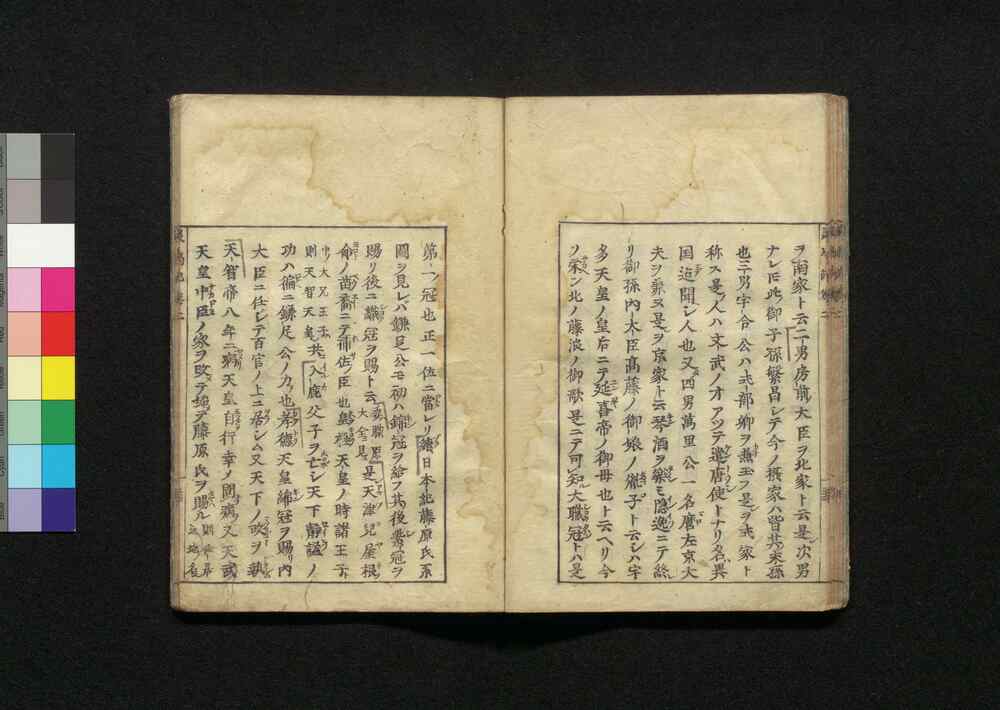 ヲ南家ト云二男房前大臣ヲ北家ト云是次男
ナレ𪜈此御子孫繁昌シテ今ノ摂家ハ皆其末孫
也三男宇合公ハ式部卿ヲ兼玉フ是ヲ式家ト
称ス是人ハ文武ノオアツテ遣唐使トナリ名異
国迠聞シ人也又四男萬里公一名麿左京大
夫ヲ兼ス是ヲ京家ト云琴酒ヲ楽ミ隠逸ニテ
リ御孫内大臣髙藤ノ御娘ノ胤子ト云シハ宇
多天皇ノ皇后ニテ延喜帝ノ御母也ト云ヘリ今
ソ栄ン北ノ藤浪ノ御歌是ニテ可知大職冠トハ是
第一冠也正一位ニ當レリ續日本紀藤原氏系
圖ヲ見レバ鎌足公モ初ハ錦冠ヲ給フ其後紫冠ヲ
賜リ後ニ織冠ヲ賜ト云 大 是天津兒屋根
命ノ苗裔ニテ輔佐臣也皇極天皇ノ時諸王子
中ノ大兄王子 則天智天皇 共入鹿父子ヲ亡シ天下静謐ノ
功ハ偏ニ鎌足公ノ力也孝德天皇錦冠ヲ賜リ内
大臣ニ任シテ百官ノ上ニ居シム又天下ノ政ヲ執
天智帝八年ニ病天皇自行幸ノ問病又天武
天皇中臣ノ家ヲ改テ絁テ藤原氏ヲ賜ル